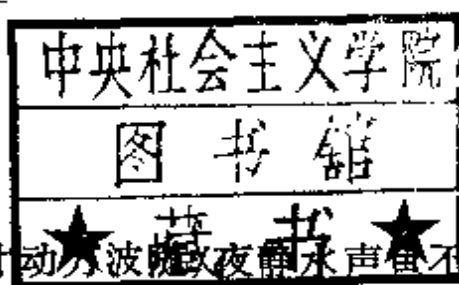 中央社会主义学院
图书馆
★藏书★
动 波 夜静水声 不